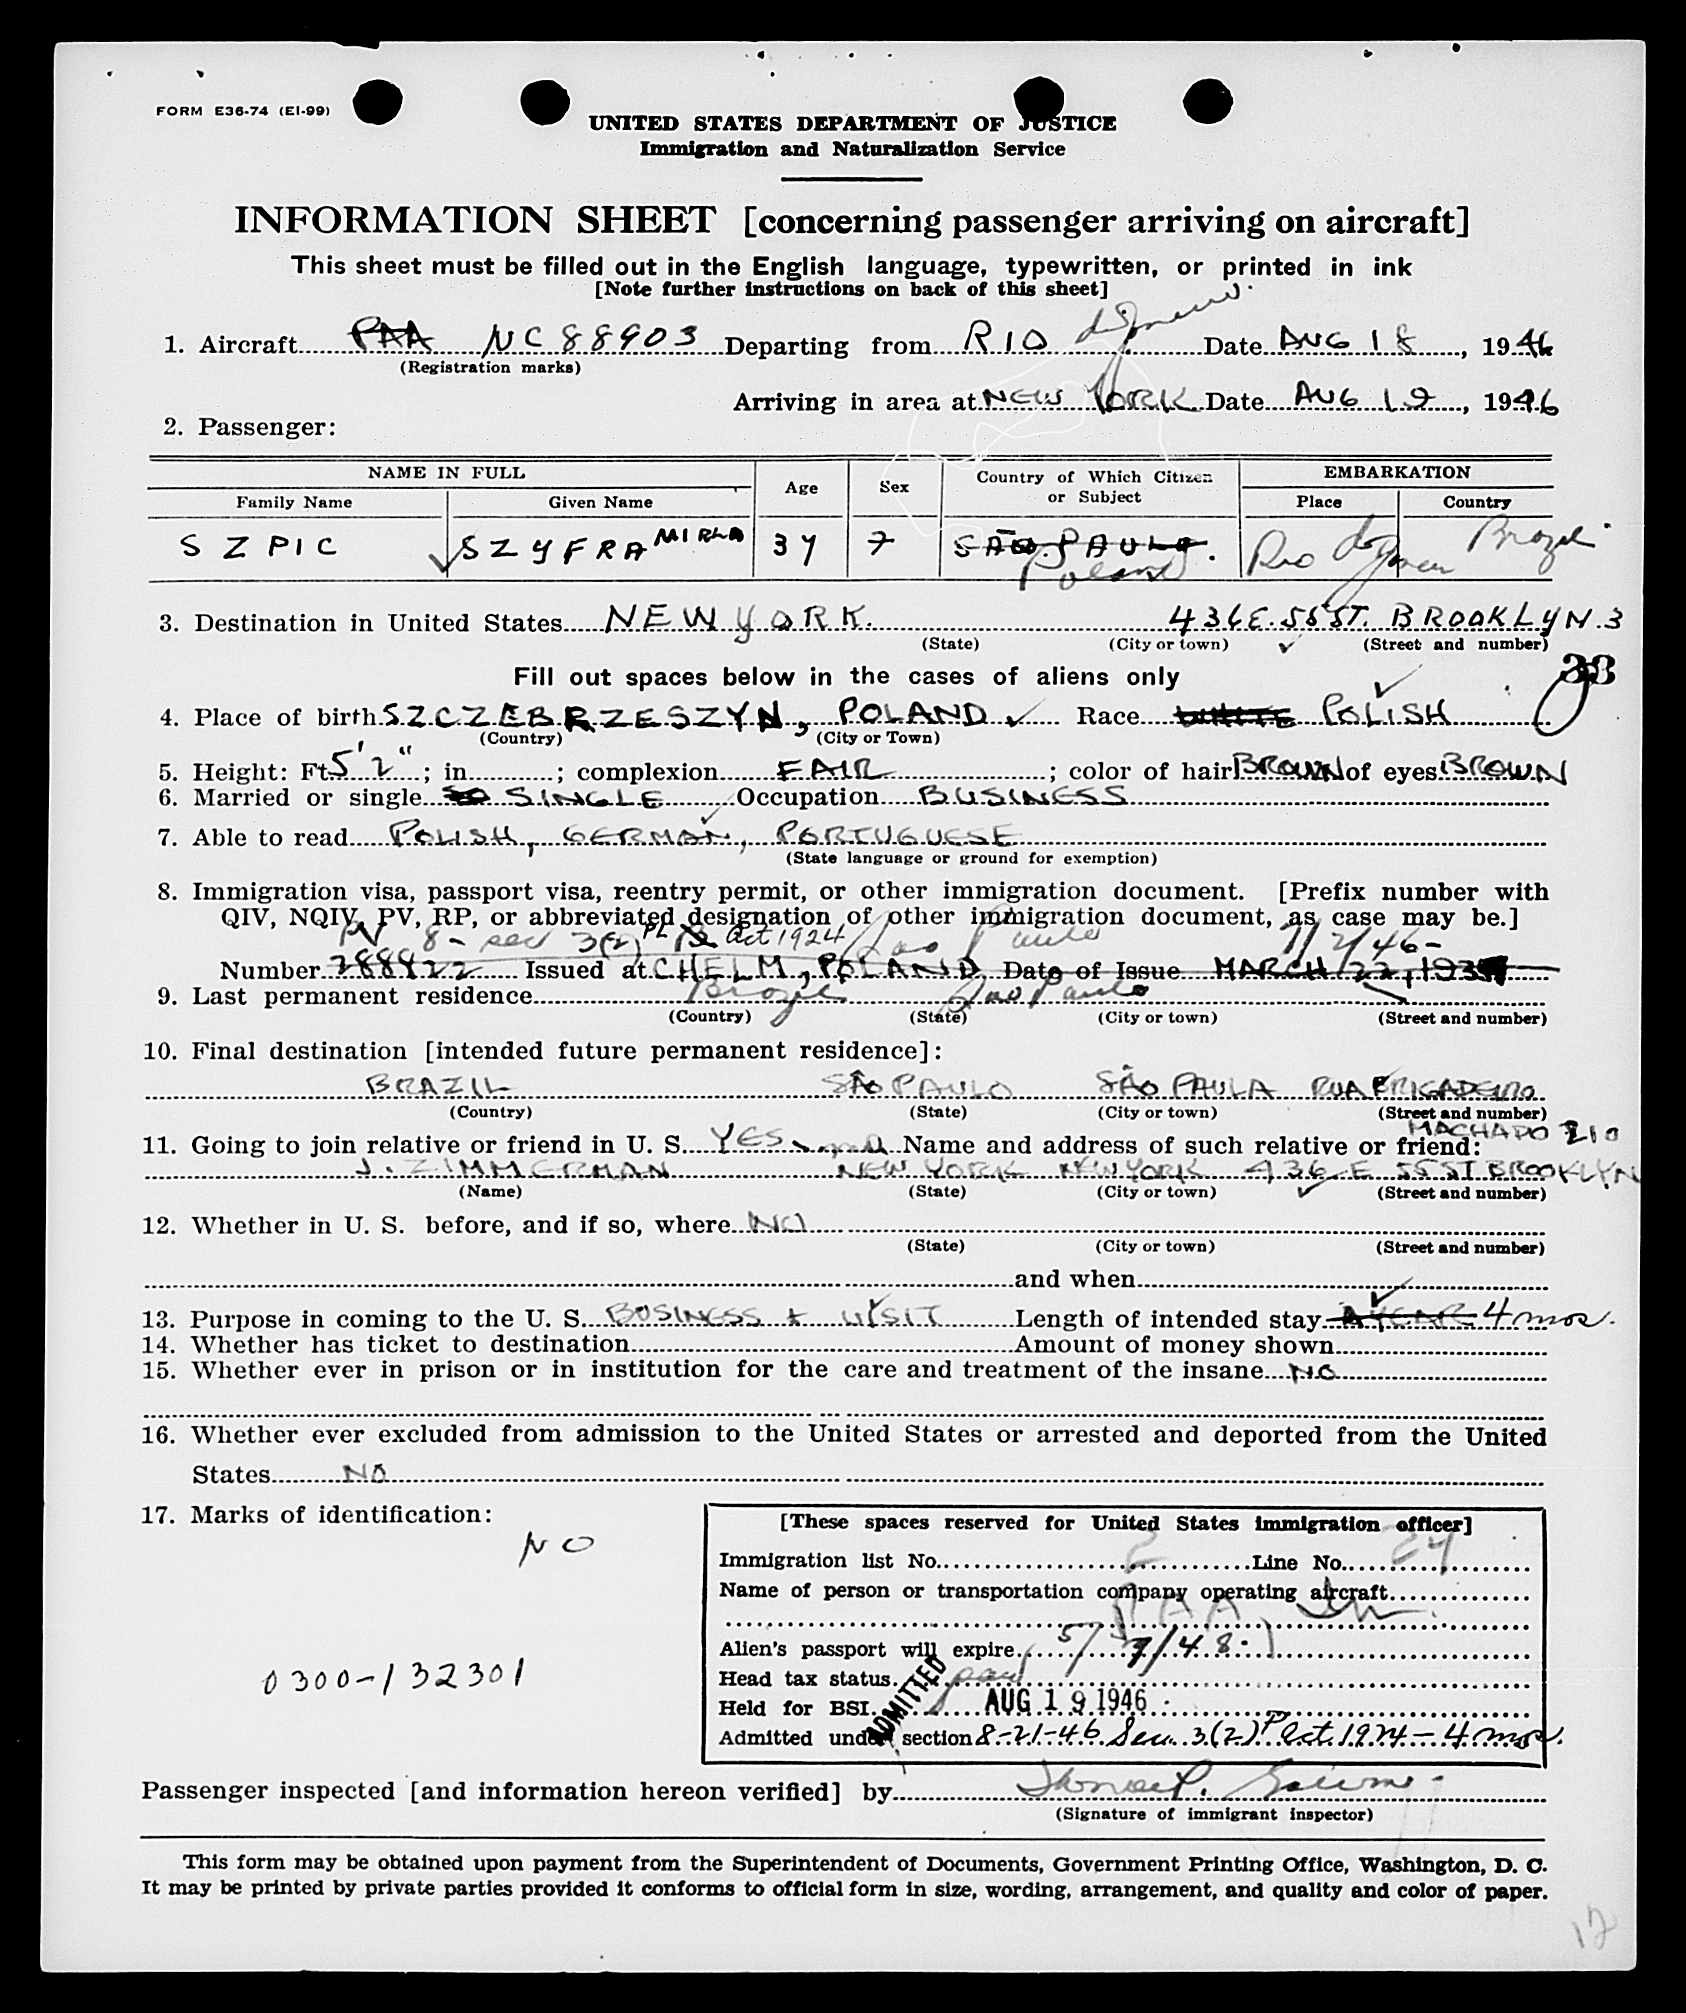 FORM E36-74 (EI-99)
UNITED STATES DEPARTMENT OF JUSTICE
Immigration and Naturalization Service
INFORMATION SHEET [concerning passenger arriving on aircraft]
This sheet must be filled out in the English language, typewritten, or printed in ink
[Note further instructions on back of this sheet]
1. Aircraft PAA NC 88903 Departing from RIO de Janeiro Date AUG 18, 1946
(Registration marks)
Arriving in area at NEW YORK Date AUG 19, 1946
2. Passenger:
NAME IN FULL Age Sex Country of Which Citizen or Subject EMBARKATION
Family Name Given Name Place Country
SZPIC SZYFRA MIRLA 37 F SÃO PAULO. Poland Rio de Janeiro Brazil
3. Destination in United States NEW YORK. 436 E. 55 ST. BROOKLYN 3
(State) (City or town) (Street and number)
33
Fill out spaces below in the cases of aliens only
4. Place of birth SZCZEBRZESZYN, POLAND Race WHITE POLISH
(Country) (City or Town)
5. Height: Ft. 5' 2"; in. ; complexion FAIR; color of hair BROWN of eyes BROWN
6. Married or single SINGLE Occupation BUSINESS
7. Able to read POLISH, GERMAN, PORTUGUESE
(State language or ground for exemption)
8. Immigration visa, passport visa, reentry permit, or other immigration document. [Prefix number with
QIV, NQIV, PV, RP, or abbreviated designation of other immigration document, as case may be.]
PV 8 - sec 3(2) Act 1924 Sao Paulo 7/2/46-
Number 288822 Issued at CHELM, POLAND Date of Issue MARCH 22, 193
9. Last permanent residence Brazil Sao Paulo
(Country) (State) (City or town) (Street and number)
10. Final destination [intended future permanent residence]:
BRAZIL SÃO PAULO SÃO PAULA RUA BRIGADEIRO
(Country) (State) (City or town) (Street and number)
MACHADO 210
11. Going to join relative or friend in U. S. YES Name and address of such relative or friend:
J. ZIMMERMAN NEW YORK NEW YORK 436 E 55 ST BROOKLYN
(Name) (State) (City or town) (Street and number)
12. Whether in U. S. before, and if so, where NO
(State) (City or town) (Street and number)
and when
13. Purpose in coming to the U. S. BUSINESS + VISIT Length of intended stay A YEAR 4 mos.
14. Whether has ticket to destination Amount of money shown
15. Whether ever in prison or in institution for the care and treatment of the insane NO
16. Whether ever excluded from admission to the United States or arrested and deported from the United
States NO
17. Marks of identification:
NO
0300-132301
[These spaces reserved for United States immigration officer]
Immigration list No. 2 Line No. 24
Name of person or transportation company operating aircraft
PAA
Alien's passport will expire 5/7/48.
Head tax status paid
Held for BSI
ADMITTED AUG 19 1946
Admitted under section 8-21-46 Sec. 3(2) Act. 1924 - 4 mos.
Passenger inspected [and information hereon verified] by
(Signature of immigrant inspector)
This form may be obtained upon payment from the Superintendent of Documents, Government Printing Office, Washington, D. C.
It may be printed by private parties provided it conforms to official form in size, wording, arrangement, and quality and color of paper.